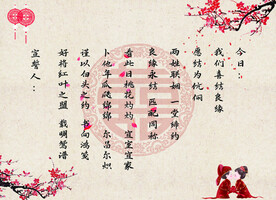 今日：
我们喜结良缘
愿结为伉俪
两姓联姻 一堂缔约
良缘永结 匹配同称
看此日桃花灼灼 宜室宜家
卜他年瓜瓞绵绵 尔昌尔炽
谨以白头之约 书向鸿笺
好将红叶之盟 载明鸳谱
宣誓人：